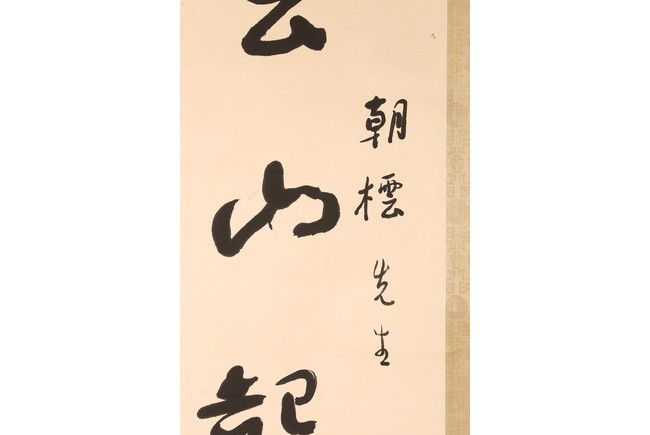 朝橒先生
山